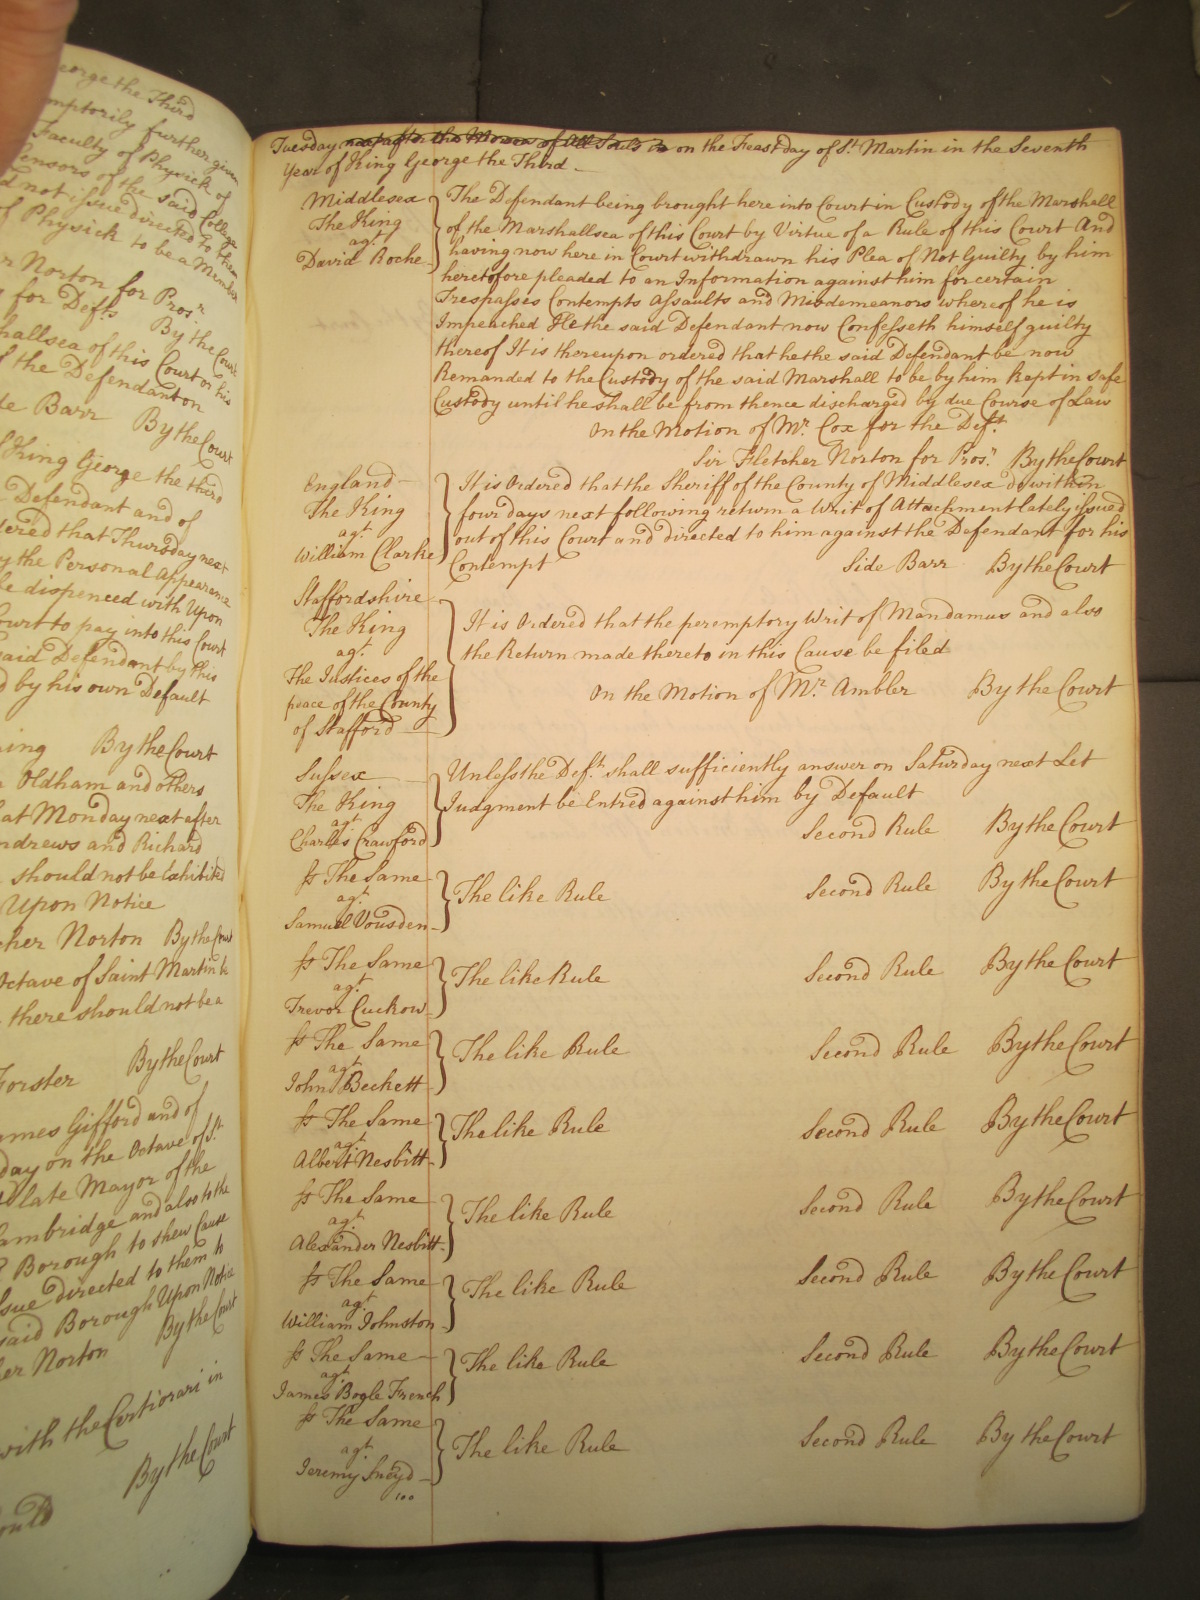 eorge the Third
mptorily further given
Faculty of Physick of
Censors of the said College
d not issue directed to them
of Physick to be a Member
r Norton for Pros.r
for Def.ts By the Court
hallsea of this Court on his
f the Defendant on
de Barr By the Court
f King George the third
Defendant and of
dered that Thursday next
y the Personal Appearance
be dispenced with Upon
Court to pay into this Court
said Defendant by this
d by his own Default
ing By the Court
n Oldham and others
at Monday next after
ndrews and Richard
should not be Exhibited
Upon Notice
cher Norton By the Court
Octave of Saint Martin be
there should not be a
Forster By the Court
ames Gifford and of
day on the Octave of S.t
d late Mayor of the
Cambridge and also to the
Borough to shew Cause
issue directed to them to
said Borough Upon Notice
er Norton By the Court
with the Certiorari in
By the Court
ould
Tuesday next after the Morrow of All Souls is on the Feastday of S.t Martin in the Seventh
Year of King George the Third
Middlesex
The King
ag.t
David Roche
The Defendant being brought here into Court in Custody of the Marshall
of the Marshallsea of this Court by Virtue of a Rule of this Court And
having now here in Court withdrawn his Plea of Not Guilty by him
heretofore pleaded to an Information against him for certain
Trespasses Contempts Assaults and Misdemeanors whereof he is
Impeached He the said Defendant now Confesseth himself guilty
thereof It is thereupon ordered that he the said Defendant be now
Remanded to the Custody of the said Marshall to be by him kept in safe
Custody until he shall be from thence discharged by due Course of Law
On the Motion of M.r Cox for the Def.t
Sir Fletcher Norton for Pros.r By the Court
England
The King
ag.t
William Clarke
It is Ordered that the Sheriff of the County of Middlesex do within
four days next following return a Writ of Attachment lately issued
out of this Court and directed to him against the Defendant for his
Contempt Side Barr By the Court
Staffordshire
The King
ag.t
The Justices of the
peace of the County
of Stafford
It is Ordered that the peremptory Writ of Mandamus and also
the Return made thereto in this Cause be filed
On the Motion of M.r Ambler By the Court
Sussex
The King
ag.t
Charles Crawford
Unless the Def.t shall sufficiently answer on Saturday next Let
Judgment be Entred against him by Default
Second Rule By the Court
Ss The Same
ag.t
Samuel Vousden
The like Rule Second Rule By the Court
Ss The Same
ag.t
Trevor Cuckow
The like Rule Second Rule By the Court
Ss The Same
ag.t
John Beckett
The like Rule Second Rule By the Court
Ss The Same
ag.t
Albert Nesbitt
The like Rule Second Rule By the Court
Ss The Same
ag.t
Alexander Nesbitt
The like Rule Second Rule By the Court
Ss The Same
ag.t
William Johnston
The like Rule Second Rule By the Court
Ss The Same
ag.t
James Bogle French
The like Rule Second Rule By the Court
Ss The Same
ag.t
Jeremy Sneyd
The like Rule Second Rule By the Court